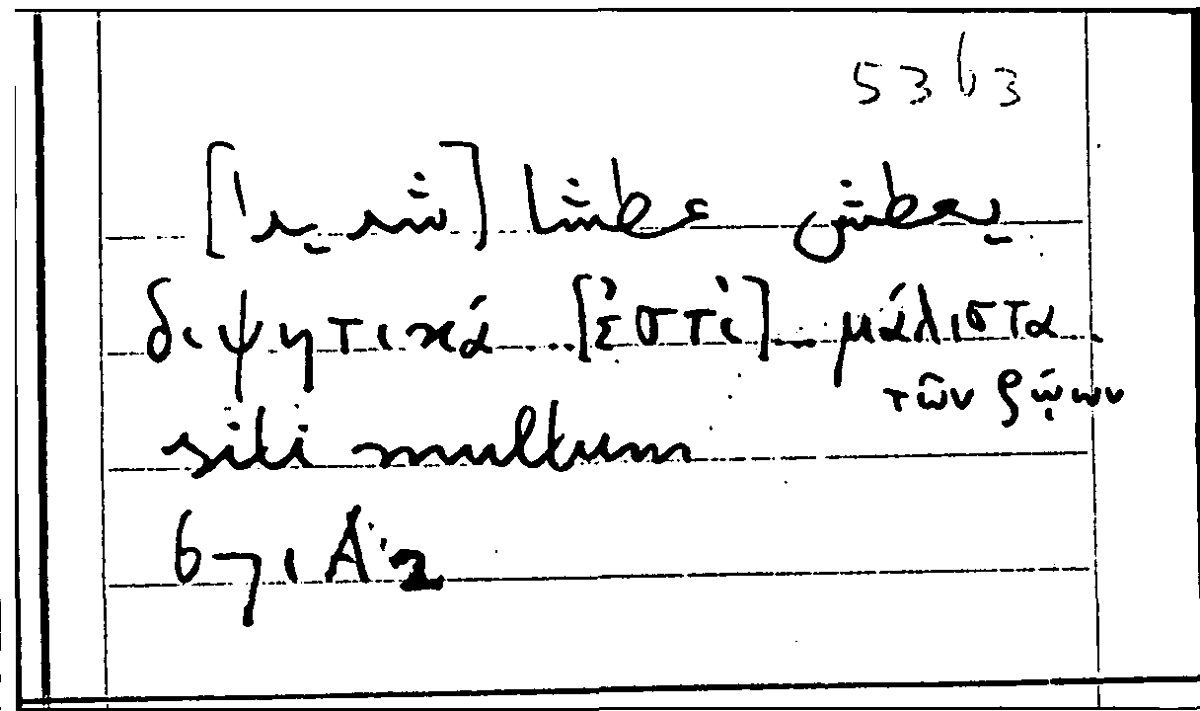 5363
يعطش عطشا [شديدا]
διψητικά .... [ἐστὶ] ... μάλιστα
τῶν ζῴων
siti multum
671 A 2